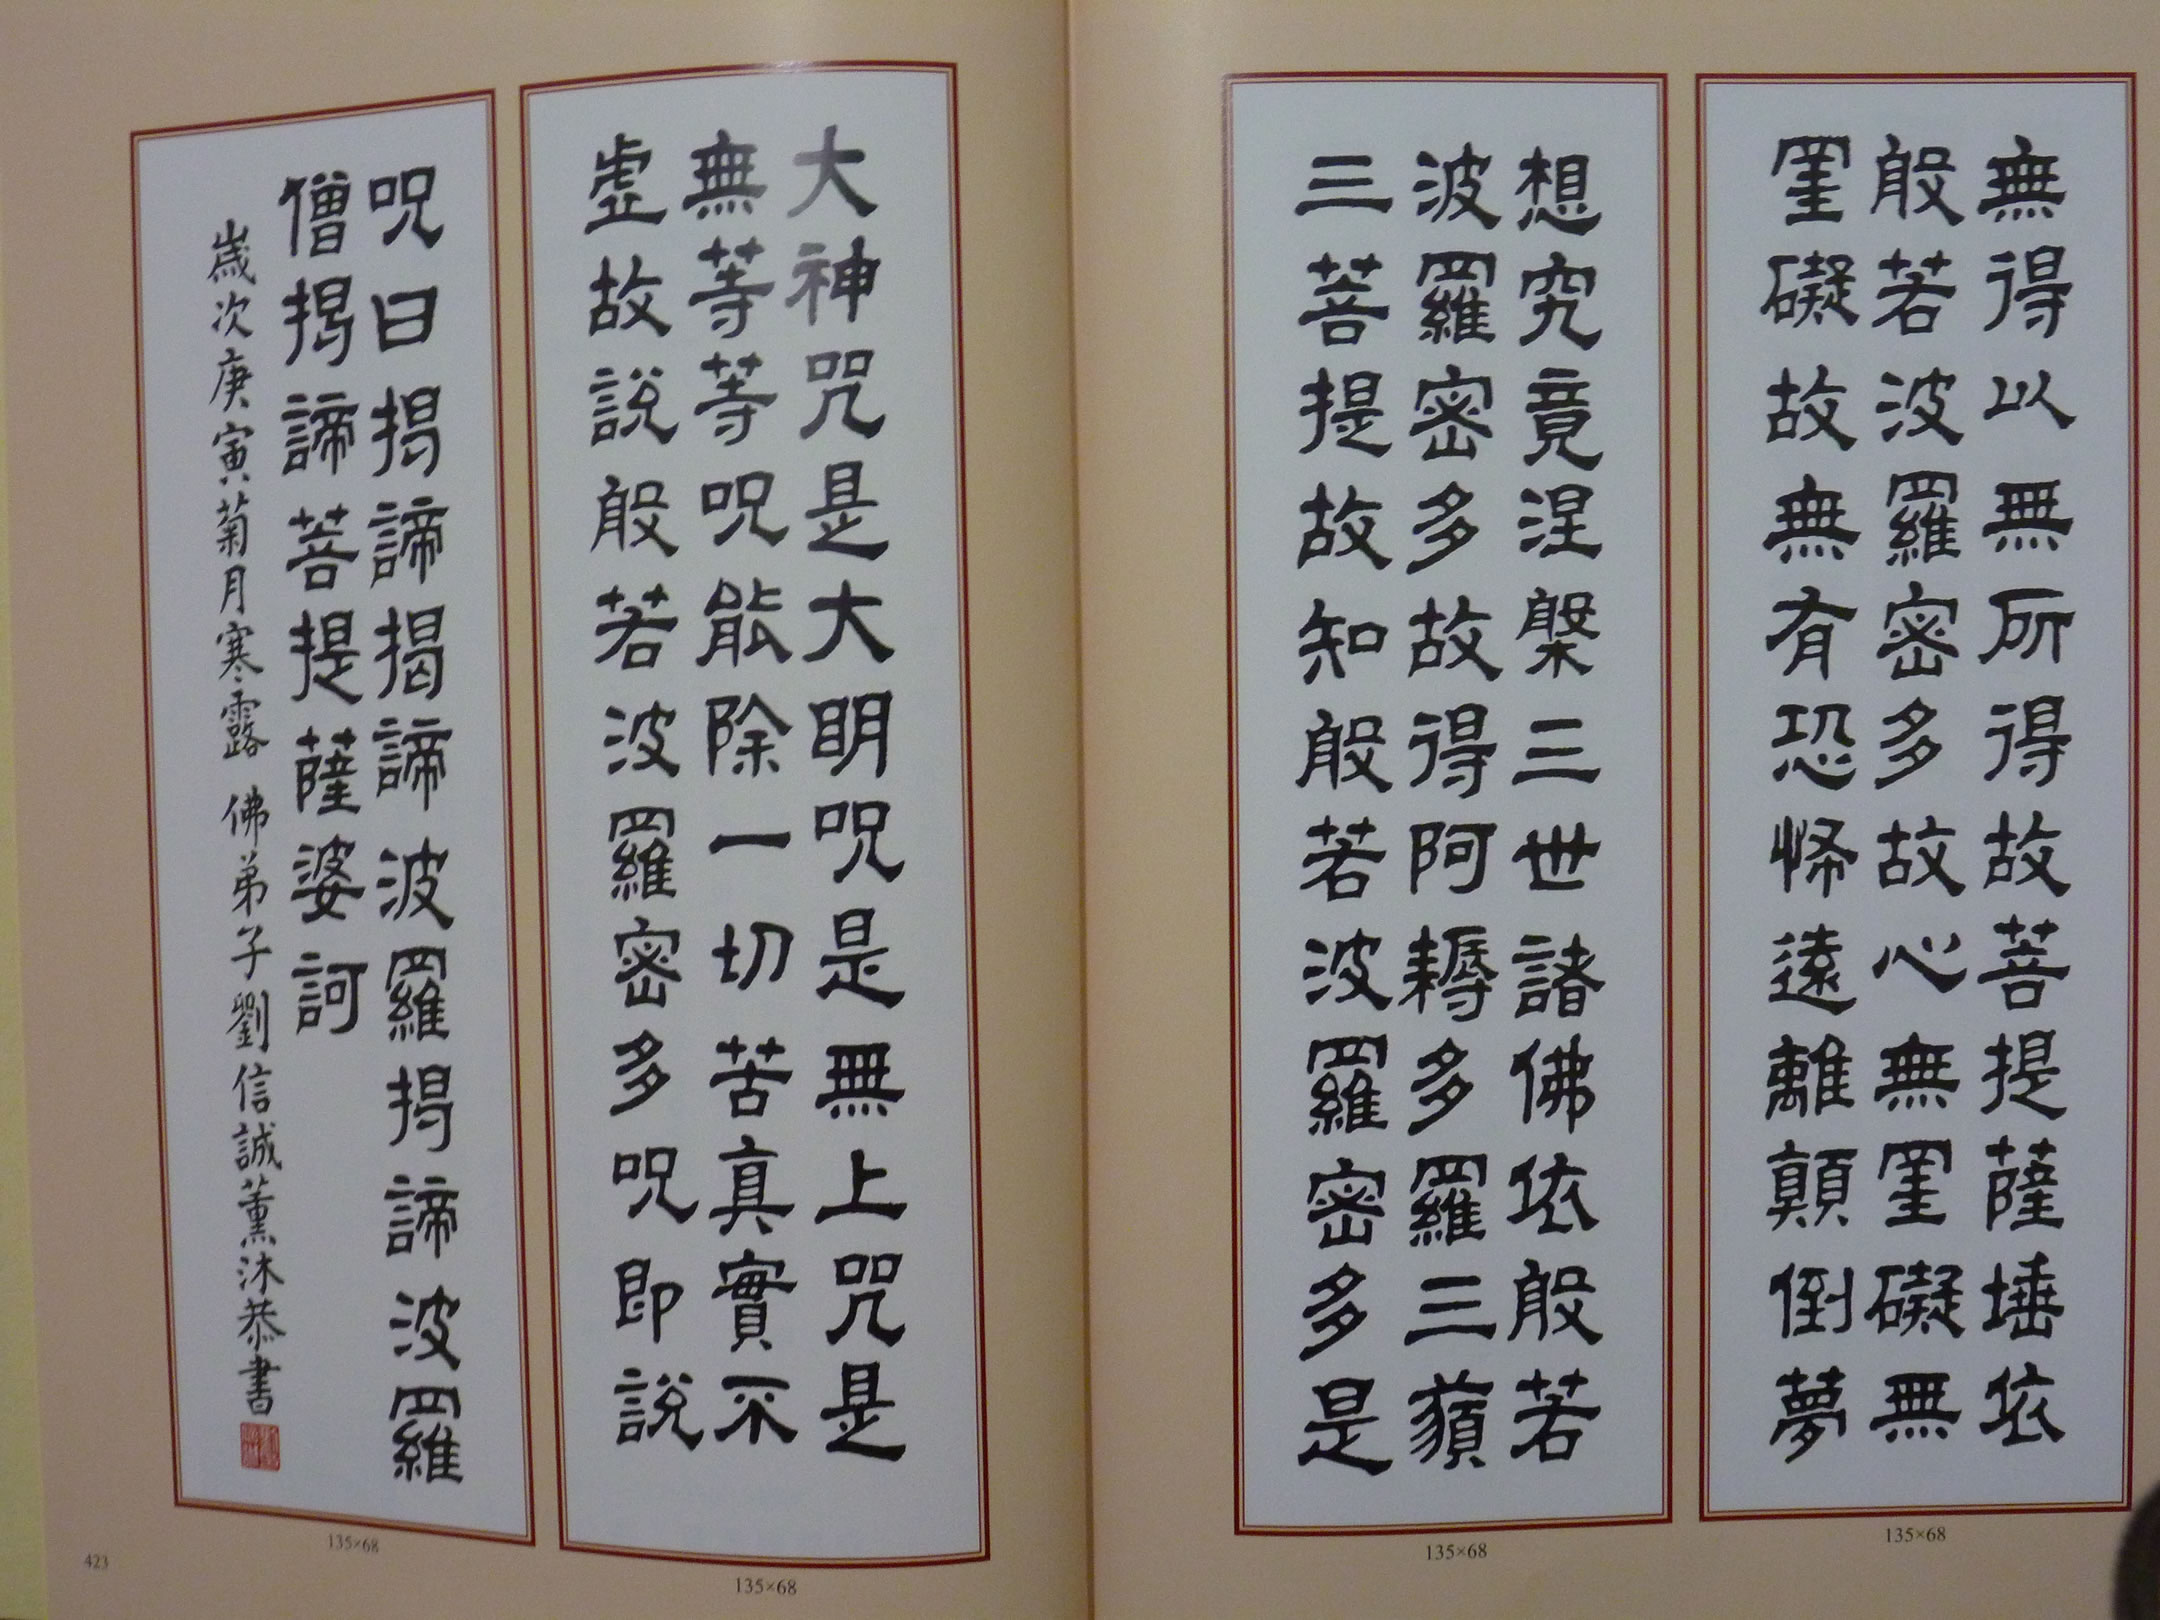 無得以無所得故菩提薩埵依
般若波羅密多故心無罣礙無
罣礙故無有恐怖遠離顛倒夢
135×68
想究竟涅槃三世諸佛依般若
波羅密多故得阿耨多羅三藐
三菩提故知般若波羅密多是
135×68
大神咒是大明呪是無上咒是
無等等呪能除一切苦真實不
虛故說般若波羅密多呪即說
135×68
呪曰揭諦揭諦波羅揭諦波羅
僧揭諦菩提薩婆訶
歲次庚寅菊月寒露 佛弟子劉信誠薰沐恭書
135×68
423